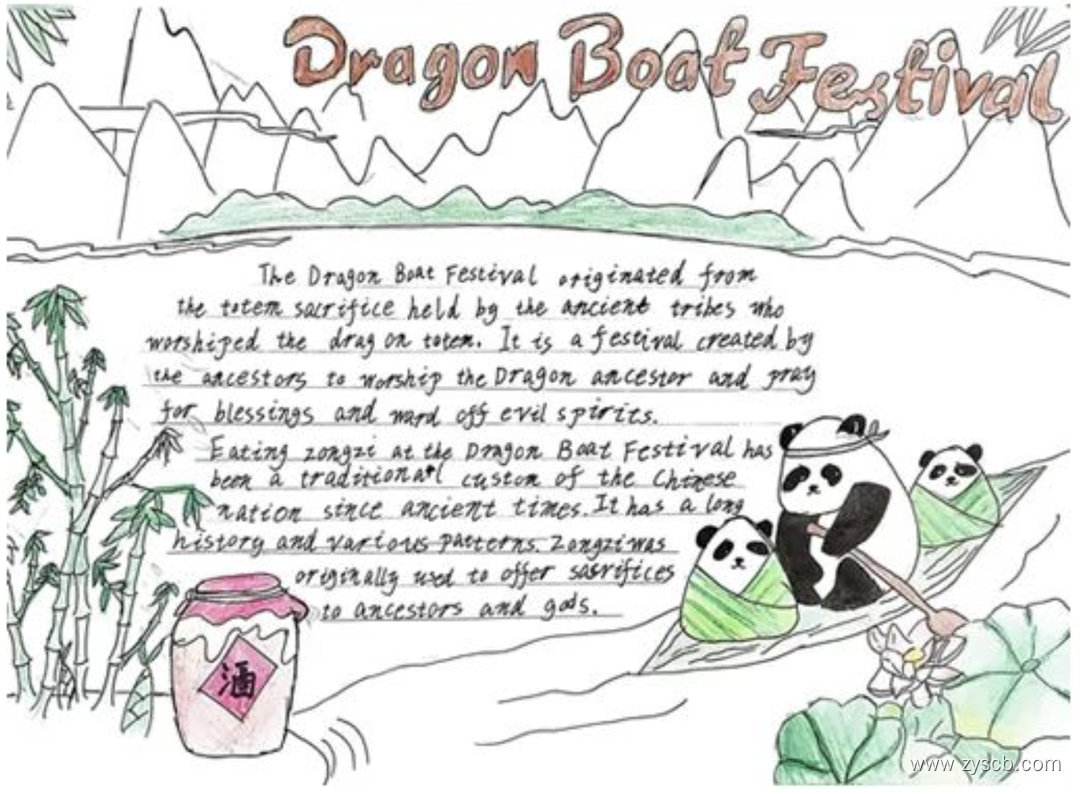 Dragon Boat Festival
The Dragon Boat Festival originated from
the totem sacrifice held by the ancient tribes who
worshiped the dragon totem. It is a festival created by
the ancestors to worship the Dragon ancestor and pray
for blessings and ward off evil spirits.
Eating zongzi at the Dragon Boat Festival has
been a traditional custom of the Chinese
nation since ancient times. It has a long
history and various patterns. Zongzi was
originally used to offer sacrifices
to ancestors and gods.
酒
www.zyscb.com